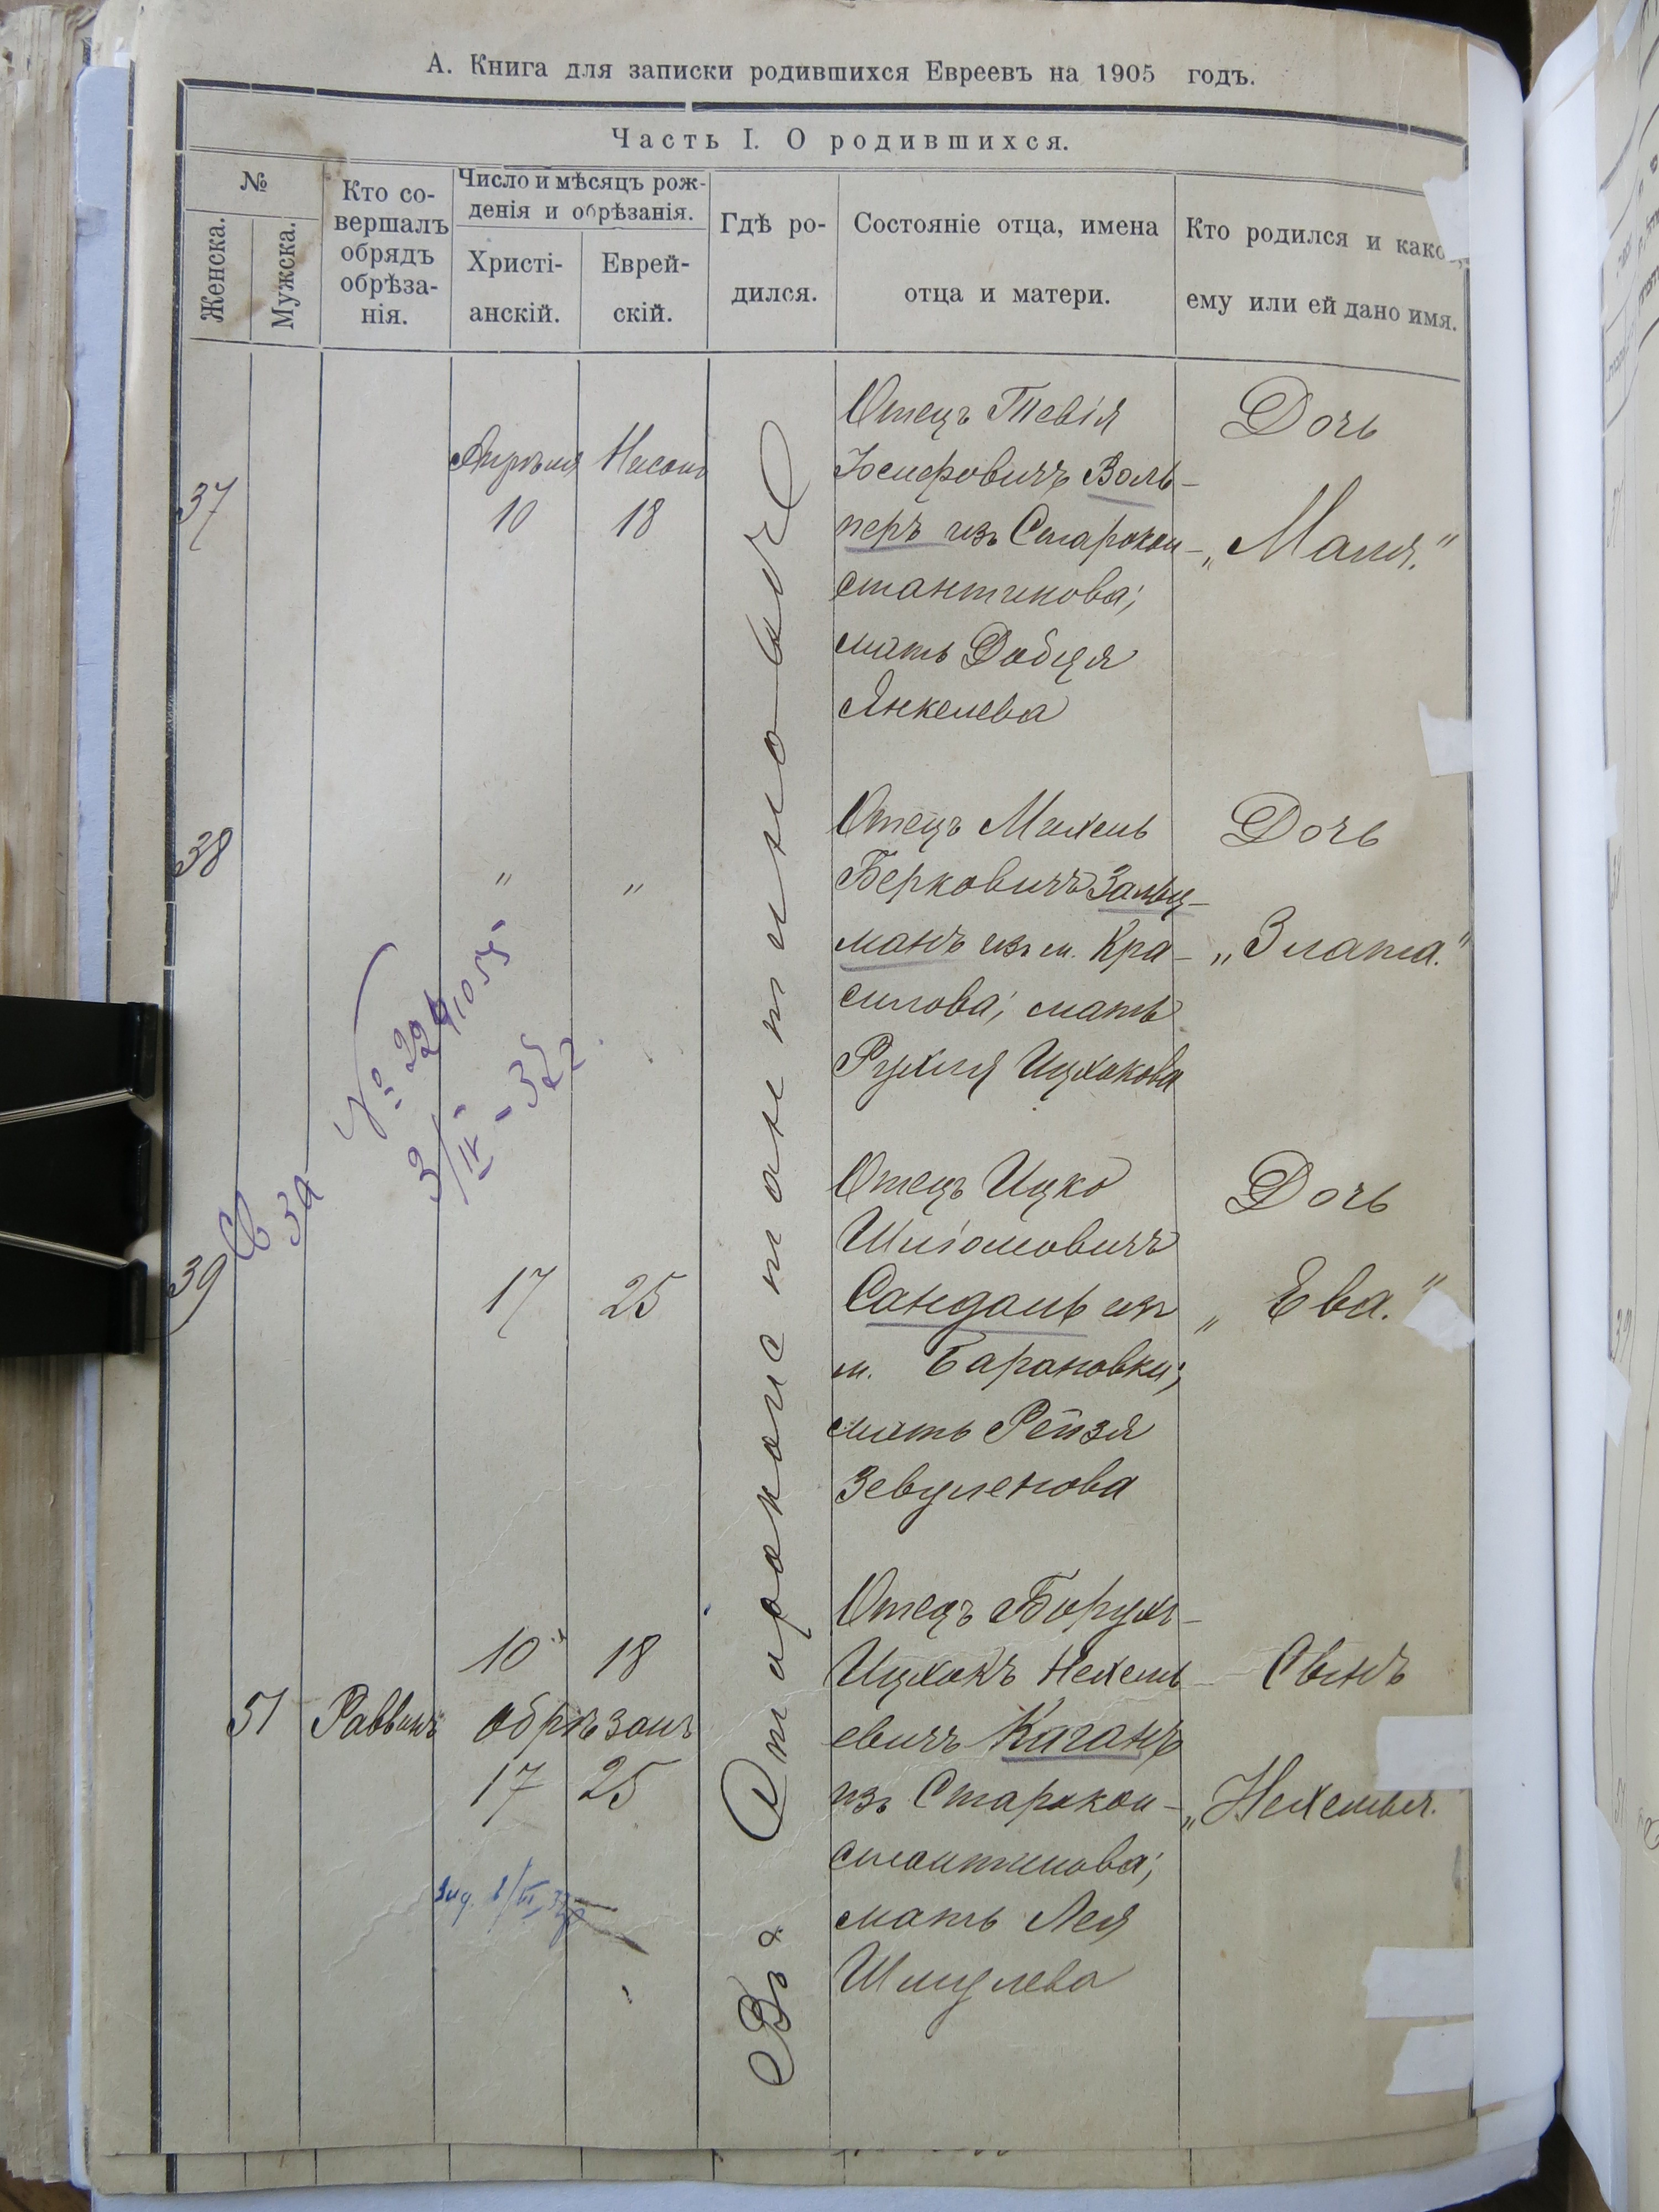 А. Книга для записки родившихся Евреевъ на 1905 годъ.
Часть I. О родившихся.
№
Женска.
Мужска.
Кто со-
вершалъ
обрядъ
обрѣза-
нія.
Число и мѣсяцъ рож-
денія и обрѣзанія.
Христі-
анскій.
Еврей-
скій.
Гдѣ ро-
дился.
Состояніе отца, имена
отца и матери.
Кто родился и како
ему или ей дано имя.
Въ г. Староконстантиновѣ
37
Апрѣля Нисонъ
10 18
Отецъ Тевія
Іосифовичъ Воль-
перъ изъ Старокон-
стантинова;
мать Добця
Янкелева
Дочь
„Маля."
38
" "
Отецъ Михель
Берковичъ Зальц-
манъ изъ м. Кра-
силова; мать
Рухля Ицхокова
Дочь
„Злата."
3/IV - 32
39
17 25
Отецъ Ицко
Шліомовичъ
Сандаль изъ
м. Барановки;
мать Рейзя
Зевуленова
Дочь
„Ева."
51 Раввинъ
10 18
обрѣзанъ
17 25
Отецъ Борухъ-
Ицхокъ Нехемь-
евичъ Каганъ
изъ Старокон-
стантинова;
мать Лея
Шмулева
Сынъ
„Нехемья.